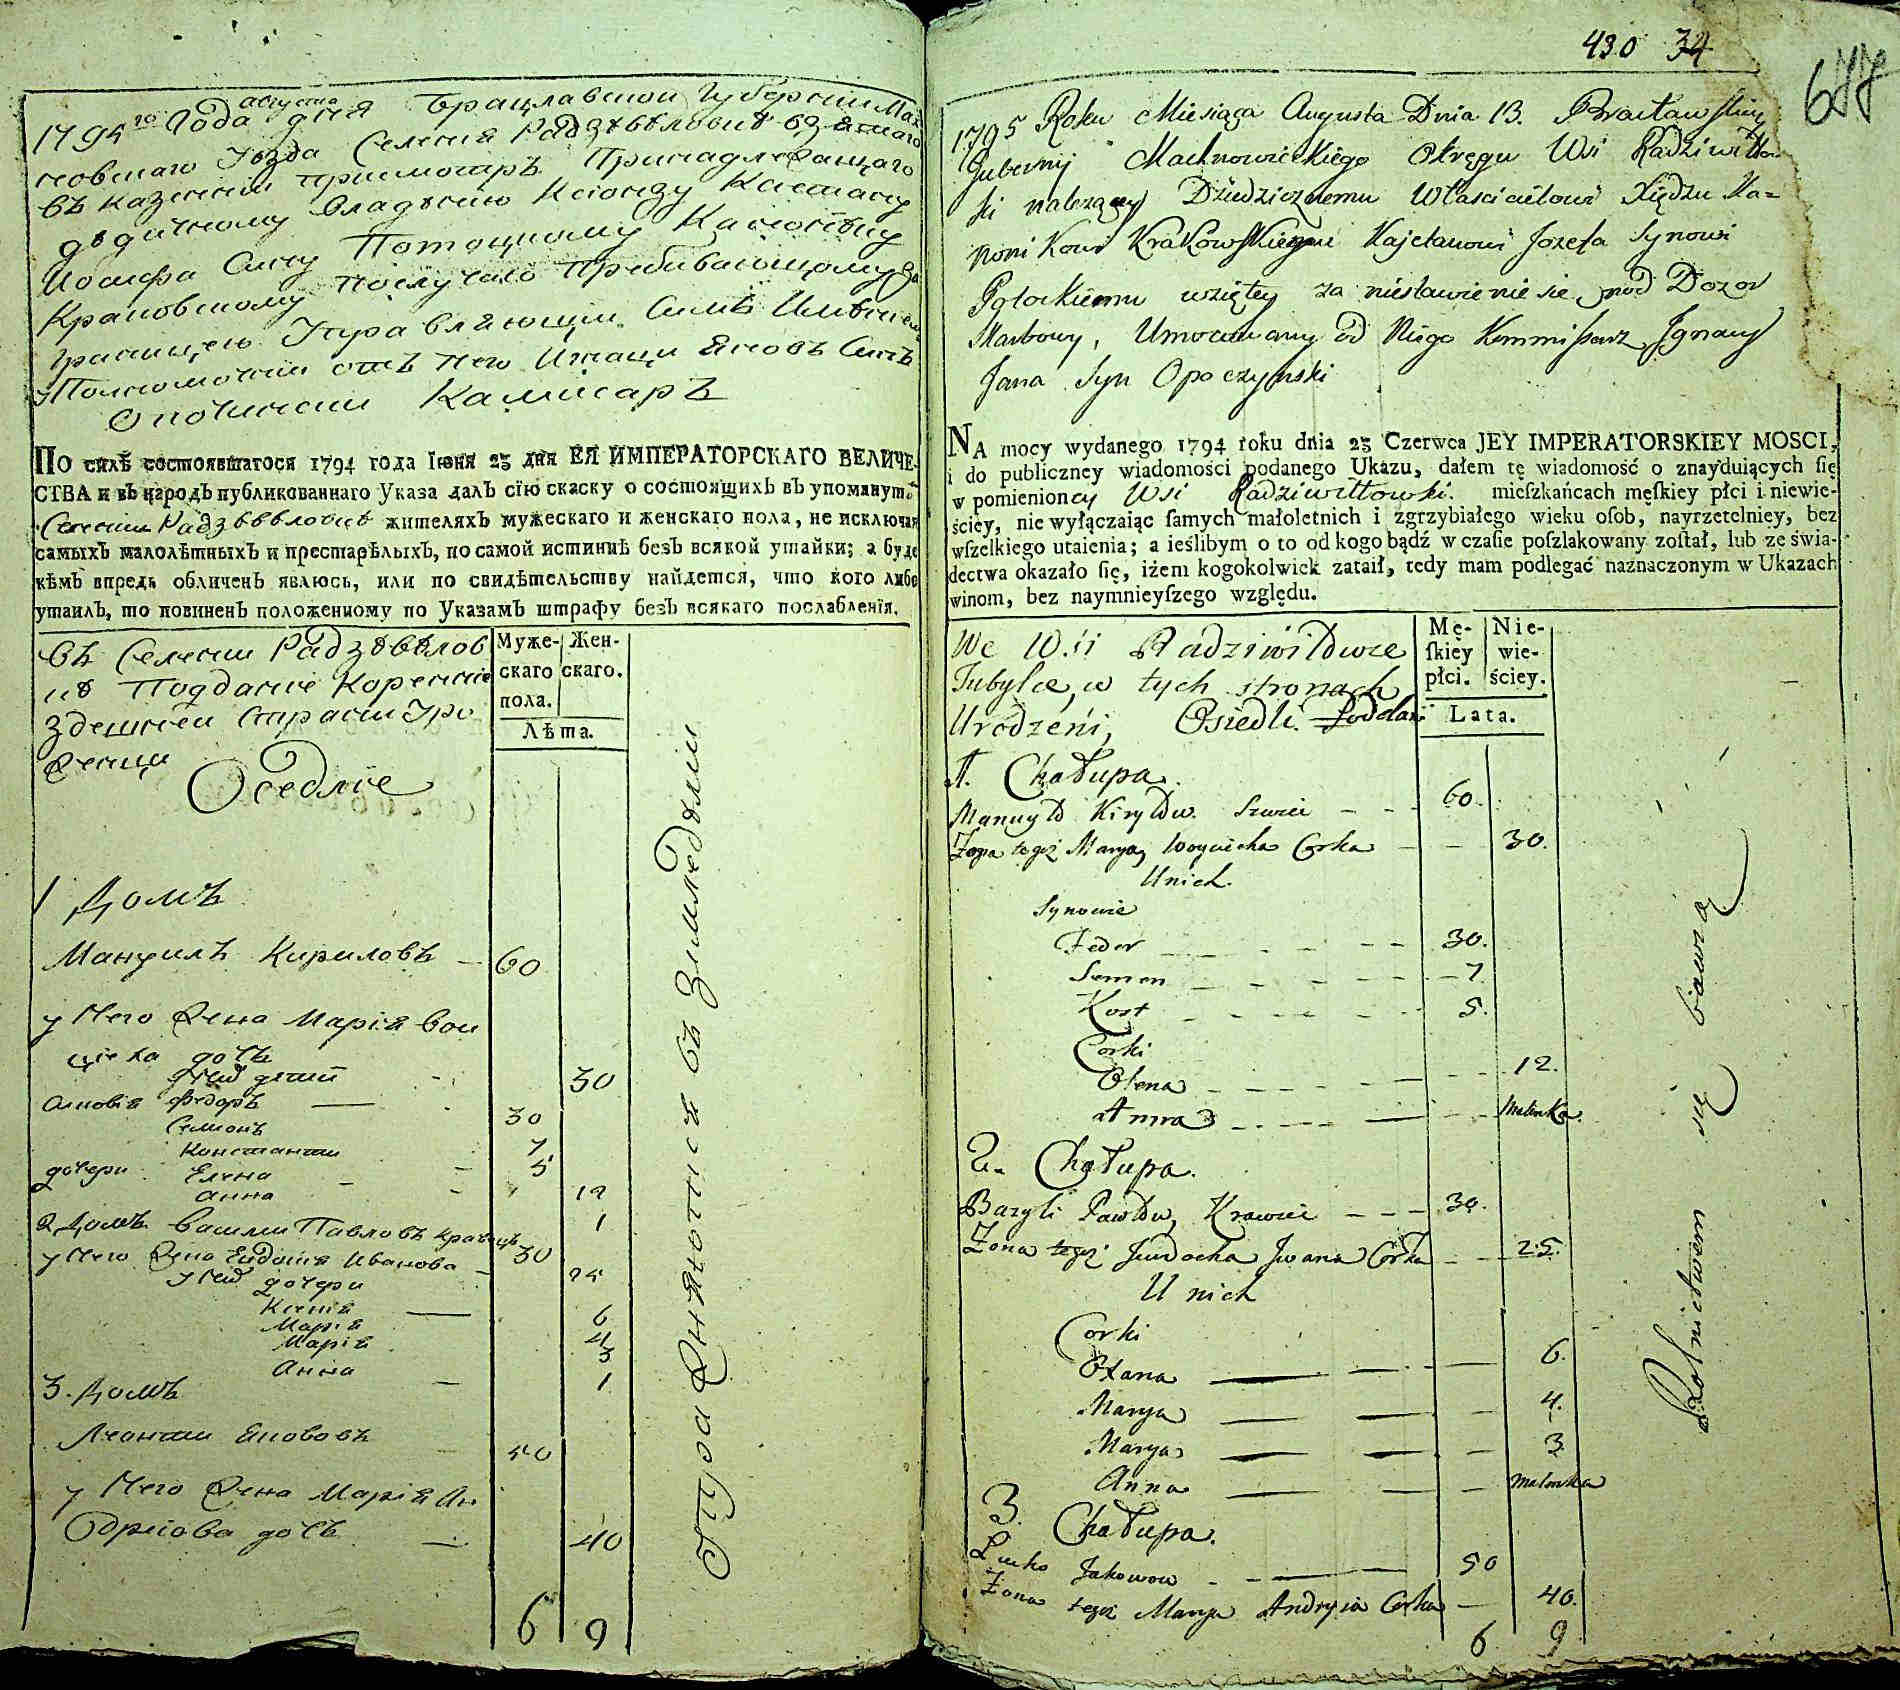 1795го Года августа дня Брацлавской Губернїи Мах
новскаго Уезда Селенія Радзѣвѣловкѣ взятаго
въ казенній присмотръ Принадлежащаго
дѣдичному владѣнію Ксіондзу Каетану
Иосифа Сину Потоцкому Каноніку
Краковскому
границею Управляющїи
Полномочни отъ него Игнаци Яновъ Синъ
Опочински Камисаръ
ПО силѣ состоявшагося 1794 года Іюня 23 дня ЕЯ ИМПЕРАТОРСКАГО ВЕЛИЧЕ-
СТВА и въ народъ публикованнаго Указа далъ сїю скаску о состоящихъ въ упомянут.
Селении Радзѣвѣловкѣ жителяхъ мужескаго и женскаго пола, не исключая
самыхъ малолѣтныхъ и престарѣлыхъ, по самой истиннѣ безъ всякой утайки; а буде
кѣмъ впредь обличенъ явлюсь, или по свидѣтельству найдется, что кого либо
утаилъ, то повиненъ положенному по Указамъ штрафу безъ всякаго послабленїя.
Въ Селении Радзѣвѣлов
кѣ Подданніе Коренніе
Здешней страни Уро
женци
Оседліе
Муже-скаго пола. Жен-скаго.
Лѣта.
1 Домъ
Мануилъ Кириловъ — 60
у Него Жена Марія Вои
циха дочь 30
у них детии
синовія Федоръ — 30
Семионъ 7
Константии 5
дочери Елена 12
анна 1
2 Домъ Василии Павловъ Кравецъ 30
у Него Жена Евдокія Иванова 25
у них дочери
Ксенія — 6
Марія 4
Марія 3
Анна 1
3. Домъ
Леонтии Якововъ 50
у Него Жена Марія Ан
Одриова дочь 40
6 9
Упражняются въ Земледѣлии
430 34
677
1795 Roku Miesiąca Augusta Dnia 13. Bracławskiey
Gubernij Machnowieckiego Okręgu Wsi Radziwiłło
ki należącey Dziedzicznemu Właścicielowi Xiędzu Ka=
nonikowi Krakowskiemu Kajetanowi Jozefa Synowi
Potockiemu wziętey za niestawienie się pod Dozor
Skarbowy, Umocowany od Niego Kommissarz Ignacy
Jana Syn Opoczyński
NA mocy wydanego 1794 roku dnia 23 Czerwca JEY IMPERATORSKIEY MOSCI,
i do publiczney wiadomości podanego Ukazu, dałem tę wiadomość o znayduiących ſię
w pomienioney Wsi Radziwiłłowski. mieſzkańcach męſkiey płci i niewie-
ściey, nie wyłączaiąc ſamych małoletnich i zgrzybiałego wieku oſob, nayrzetelniey, bez
wſzelkiego utaienia; a ieślibym o to od kogo bądź w czaſie poſzlakowany zoſtał, lub ze świa-
dectwa okazało ſię, iżem kogokolwiek zataił, tedy mam podlegać naznaczonym w Ukazach
winom, bez naymnieyſzego względu.
We Wsi Radziwiłłowce
Tubylce w tych stronach
Urodzeni, Osiedli.
Mę-ſkiey płci. Nie-wie-ściey.
Lata.
1. Chałupa.
Manuyło Kiryłow. Szwiec 60.
Żona tegoż Marya, Woyciecha Corka 30.
U nich.
Synowie
Fedor 30.
Semen 7
Kost 5.
Corki
Olena 12.
Anna Malenka.
2. Chałupa.
Bazyli Pawłow, Krawiec 30.
Żona tegoż Jewdocha Jwana Corka 25.
U nich
Corki
Oxana 6.
Marya 4.
Marya 3
Anna malenka
3. Chałupa.
Lewko Jakowow 50
Żona tegoż Marya Andryia Corka 40.
6 9
Rolnictwem się bawią